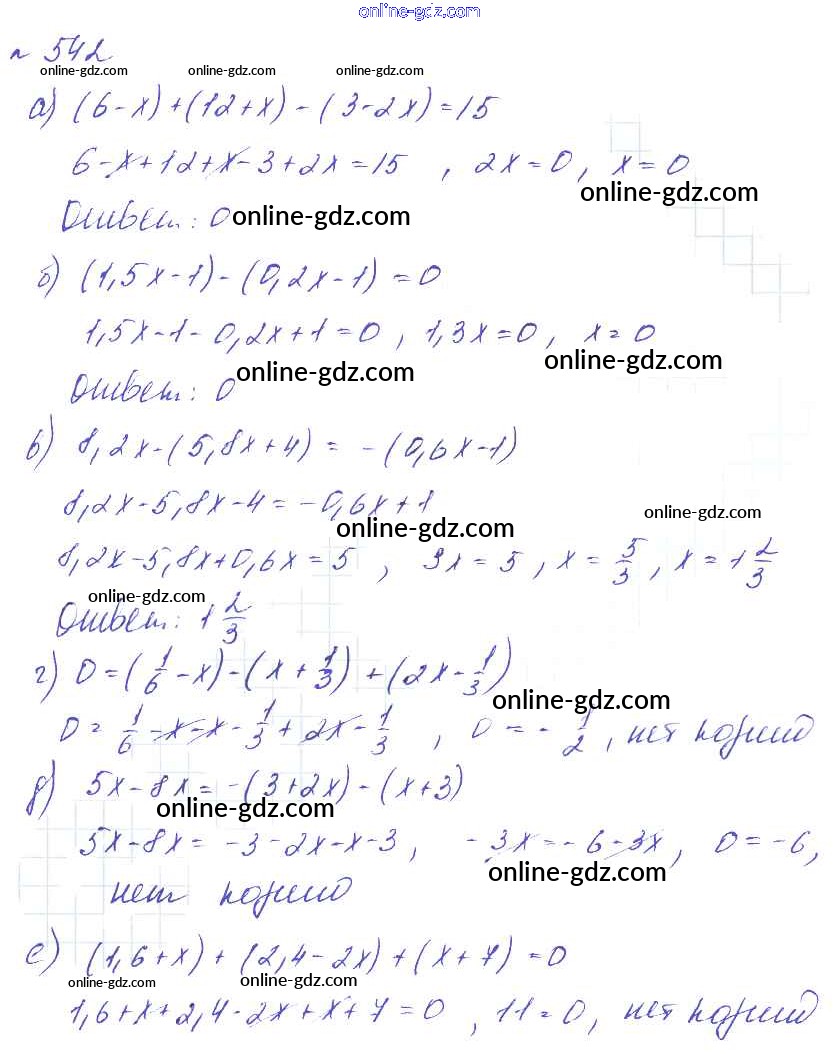 online-gdz.com
№ 542
online-gdz.com online-gdz.com online-gdz.com
а) (6-x)+(12+x)-(3-2x)=15
6-x+12+x-3+2x=15, 2x=0, x=0
online-gdz.com
Ответ: 0 online-gdz.com
б) (1,5x-1)-(0,2x-1)=0
1,5x-1-0,2x+1=0, 1,3x=0, x=0
online-gdz.com
Ответ: 0 online-gdz.com
в) 8,2x-(5,8x+4)=-(0,6x-1)
8,2x-5,8x-4=-0,6x+1
online-gdz.com online-gdz.com
8,2x-5,8x+0,6x=5, 3x=5, x=5/3, x=1 2/3
online-gdz.com
Ответ: 1 2/3
г) 0=(1/6-x)-(x+1/3)+(2x-1/3)
online-gdz.com
0=1/6-x-x-1/3+2x-1/3, 0=-1/2, нет корней
д) 5x-8x=-(3+2x)-(x+3)
online-gdz.com
5x-8x=-3-2x-x-3, -3x=-6-3x, 0=-6,
online-gdz.com
нет корней
е) (1,6+x)+(2,4-2x)+(x+7)=0
online-gdz.com online-gdz.com
1,6+x+2,4-2x+x+7=0, 11=0, нет корней